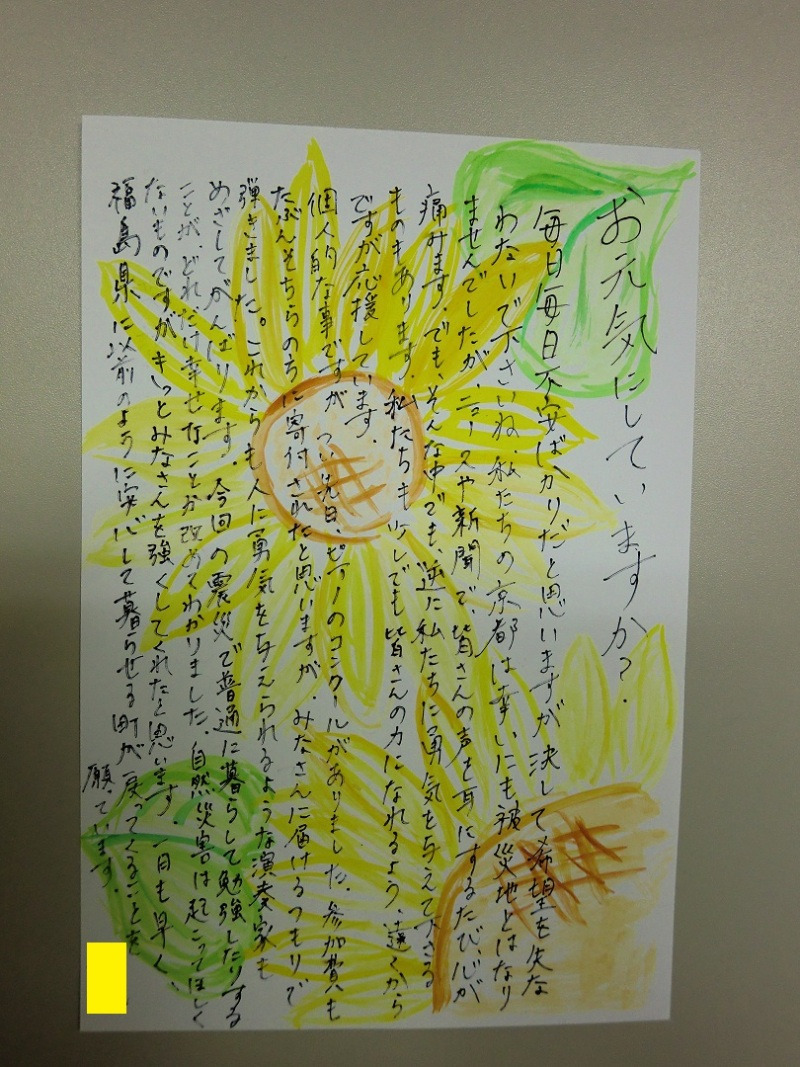 お元気にしていますか?
毎日毎日不安ばかりだと思いますが決して希望を失な
わないで下さいね。私たちの京都は幸いにも被災地とはなり
ませんでしたが、ニュースや新聞で、皆さんの声を耳にするたび、心が
痛みます。でも、そんな中でも、逆に私たちに勇気を与えて下さる
ものもあります。私たちも少しでも皆さんの力になれるよう、遠くから
ですが応援しています。
個人的な事ですが、つい先日、ピアノのコンクールがありました。参加費も
たぶんそちらの方に寄付されたと思いますが、みなさんに届けるつもりで
弾きました。これからも人に勇気を与えられるような演奏家も
めざしてがんばります。今回の震災で普通に暮らして勉強したりする
ことが、どれだけ幸せなことか改めてわかりました。自然災害は起こってほしく
ないものですがきっとみなさんを強くしてくれたと思います。一日も早く、
福島県に以前のように安心して暮らせる町が戻ってくることを
願ています。